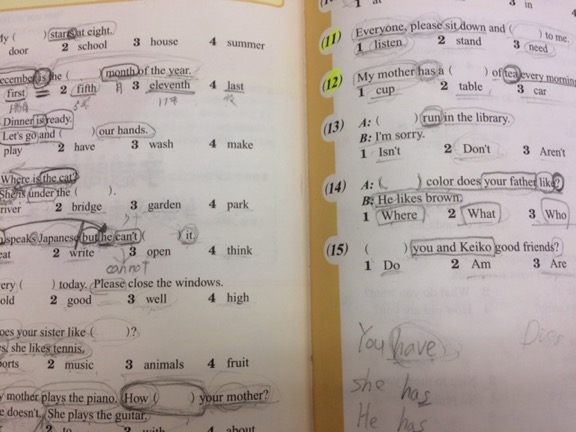 My ( ) starts at eight.
door 2 school 3 house 4 summer
December is the ( ) month of the year.
first 2 fifth 3 eleventh 4 last
Dinner is ready.
Let's go and ( ) our hands.
play 2 have 3 wash 4 make
Where is the cat?
She is under the ( ).
river 2 bridge 3 garden 4 park
speaks Japanese but he can't ( ) it.
eat 2 write 3 open 4 think
cannot
ery ( ) today. Please close the windows.
old 2 good 3 well 4 high
oes your sister like ( )?
s, she likes tennis.
orts 2 music 3 animals 4 fruit
mother plays the piano. How ( ) your mother?
e doesn't. She plays the guitar.
2 to 3 with 4 about
1 at 3 in
(11) Everyone, please sit down and ( ) to me.
1 listen 2 stand 3 need
(12) My mother has a ( ) of tea every morning
1 cup 2 table 3 car
(13) A: ( ) run in the library.
B: I'm sorry.
1 Isn't 2 Don't 3 Aren't
(14) A: ( ) color does your father like?
B: He likes brown.
1 Where 2 What 3 Who
(15) ( ) you and Keiko good friends?
1 Do 2 Am 3 Are
You have
she has
He has